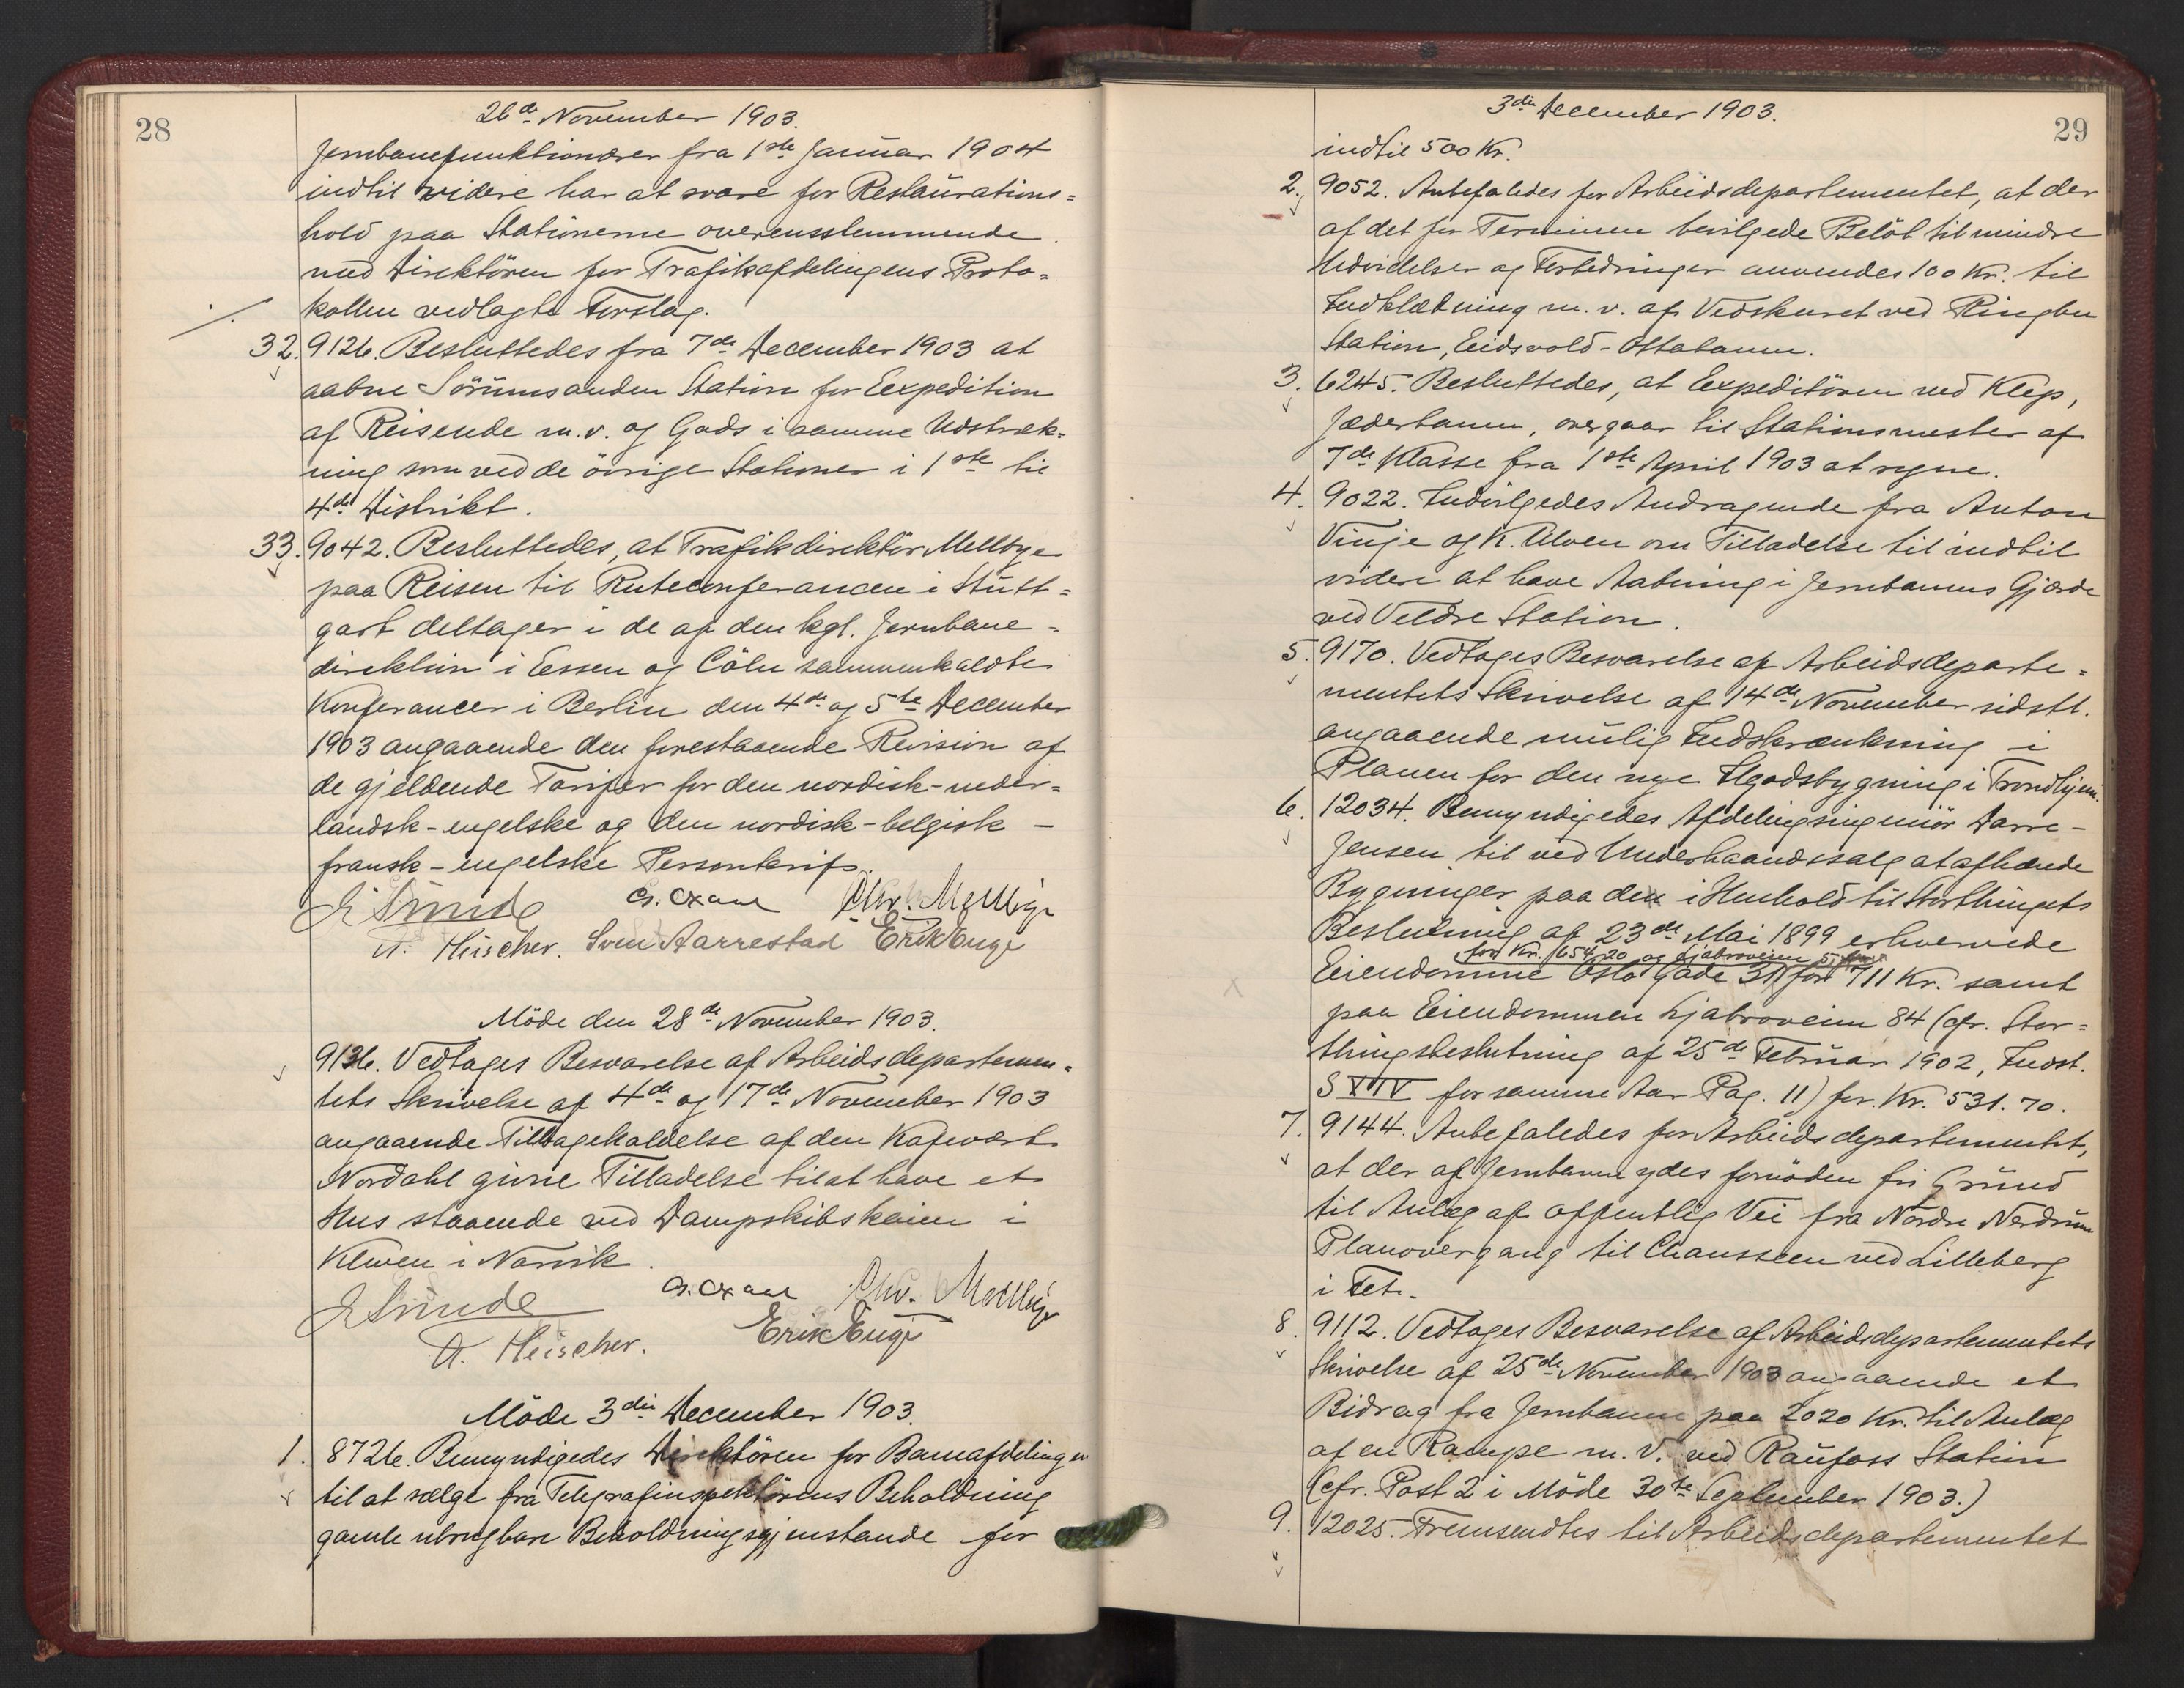 28
26de November 1903.
Jernbanefunktionærer fra 1ste Januar 1904
indtil videre har at svare for Restaurations=
hold paa Stationerne overensstemmende
med Direktören for Trafikafdelingens Proto=
kollen vedlagte Forslag.
32. 9126. Besluttedes fra 7de December 1903 at
aabne Sörumsanden Station for Eexpedition
af Reisende m.v. og Gods i samme Udstræk=
ning som ved de övrige Stationer i 1ste til
4de Distrikt.
33. 9042. Besluttedes, at Trafikdirektör Mellbye
paa Reisen til Ruteconferancen i Stutt=
gart deltager i de af den kgl. Jernbane=
direktion i Eessen og Cöln sammenkaldte
Konferancer i Berlin den 4de og 5te December
1903 angaaende den forestaaende Revision af
de gjeldende Tariffer for den nordisk-neder=
landsk-engelske og den nordisk-belgisk-
fransk-engelske Persontarif.
E Sunde G. Cxane Chr. Mellbye
A. Fleischer. Sven Aarrestad Erik Enge
Möde den 28de November 1903.
9136. Vedtages Besvarelse af Arbeidsdepartemen=
tets Skrivelse af 4de og 17de November 1903
angaaende Tilbagekaldelse af den Kafevært
Nordahl givne Tilladelse til at have et
Hus staaende ved Dampskibskaien i
Kleven i Narvik.
E Sunde G. Cxane Chr. Mellbye
A. Fleischer. Erik Enge
Möde 3die December 1903.
1. 8726. Bemyndigedes Direktören for Baneafdelingen
til at sælge fra Telegrafinspektörens Beholdning
gamle ubrugbare Beholdningsgjenstande for
29
3die December 1903.
indtil 500 Kr.
2. 9052. Anbefaledes for Arbeidsdepartementet, at der
af det for Terminen bevilgede Belöb til mindre
Udvidelser og Forbedringer anvendes 100 Kr. til
Indklædning m.v. af Vedskuret ved Ringebu
Station, Eidsvold-Ottabanen.
3. 6245. Besluttedes, at Expeditören ved Klep,
Jæderbanen, overgaar til Stationsmester af
7de Klasse fra 1ste April 1903 at regne.
4. 9022. Indvilgedes Andragende fra Anton
Vinje og K. Ulven om Tilladelse til indtil
videre at have Aabning i Jernbanens Gjærde
ved Veldre Station.
5. 9170. Vedtages Besvarelse af Arbeidsdeparte=
mentets Skrivelse af 14de November sidstl.
angaaende mulig Indskrænkning i
Planen for den nye Ilgodsbygning i Trondhjem.
6. 12034. Bemyndigedes Afdelingsingeniör Darre-
Jensen til ved Underhaandssalg at afhænde
Bygninger paa de i Henhold til Storthingets
Beslutning af 23de Mai 1899 erhvervede
for Kr. 654.20 og Ljabroveien 5
Eiendomme Oslo Gade 31 for 711 Kr. samt
paa Eiendommen Ljabroveien 84 (cfr. Stor=
thingsbeslutning af 25de Februar 1902, Indst.
S XIV for samme Aar Pag. 11) for Kr. 531.70.
7. 9144. Anbefaledes for Arbeidsdepartementet,
at der af Jernbanen ydes fornöden fri Grund
til Anlæg af offentlig Vei fra Nordre Nerdrum
Planovergang til Chausseen ved Lilleberg
i Fet.
8. 9112. Vedtages Besvarelse af Arbeidsdepartementets
Skrivelse af 25de November 1903 angaaende et
Bidrag fra Jernbanen paa 2020 Kr. til Anlæg
af en Rampe m.v. ved Raufoss Station
(cfr. Post 2 i Möde 30te September 1903.)
9. 12025. Fremsendtes til Arbeidsdepartementet